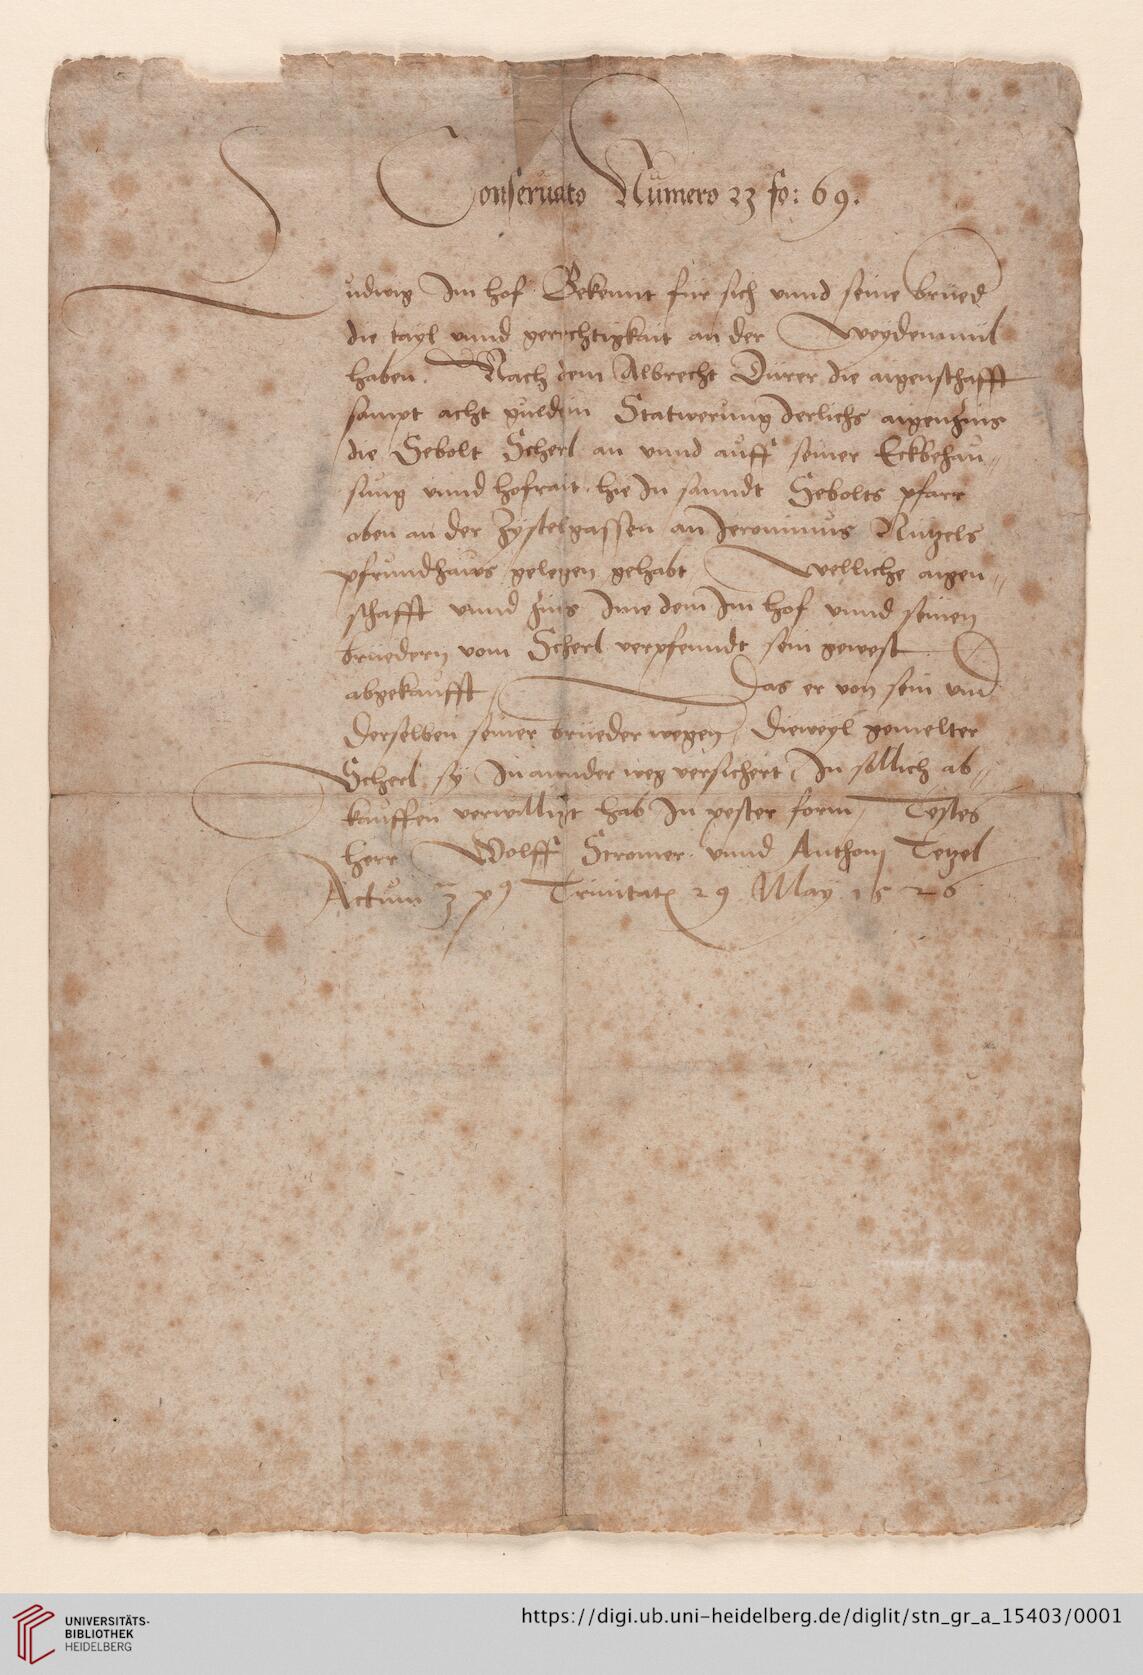 Conseruato Numero 23 fo: 69.
Ludwig Im hof Bekennt für sich vnnd seine brüed
die tayl vnnd gerechtigkait an der Weydenmül
haben. Nach dem Albrecht Dürer die aigenschafft
sampt acht guldin Statwerung derlichs aigenzins
die Sebolt Scherl an vnnd auff seiner Eckbehau=
sung vnnd hofrait hie In sanndt Sebolts pfarr
oben an der Zystelgassen an Jeronimus Nützels
pfrundhaws gelegen gehabt Welliche aigen=
schafft vnnd zins Ime dem Im hof vnnd seinen
bruedern vom Scherl verpfenndt sein gewest
abgekaufft Das er von sein vnd
derselben seiner brüeder wegen, dieweyl gemelter
Scherl sy In annder weg versichert In sollich ab=
kauffen verwilligt hab In pester form Testes
herr Wolff Stromer vnnd Anthonj Tetzel
Actum 3 Trinitat 29 May 1526
UNIVERSITÄTS-
BIBLIOTHEK
HEIDELBERG
https://digi.ub.uni-heidelberg.de/diglit/stn_gr_a_15403/0001